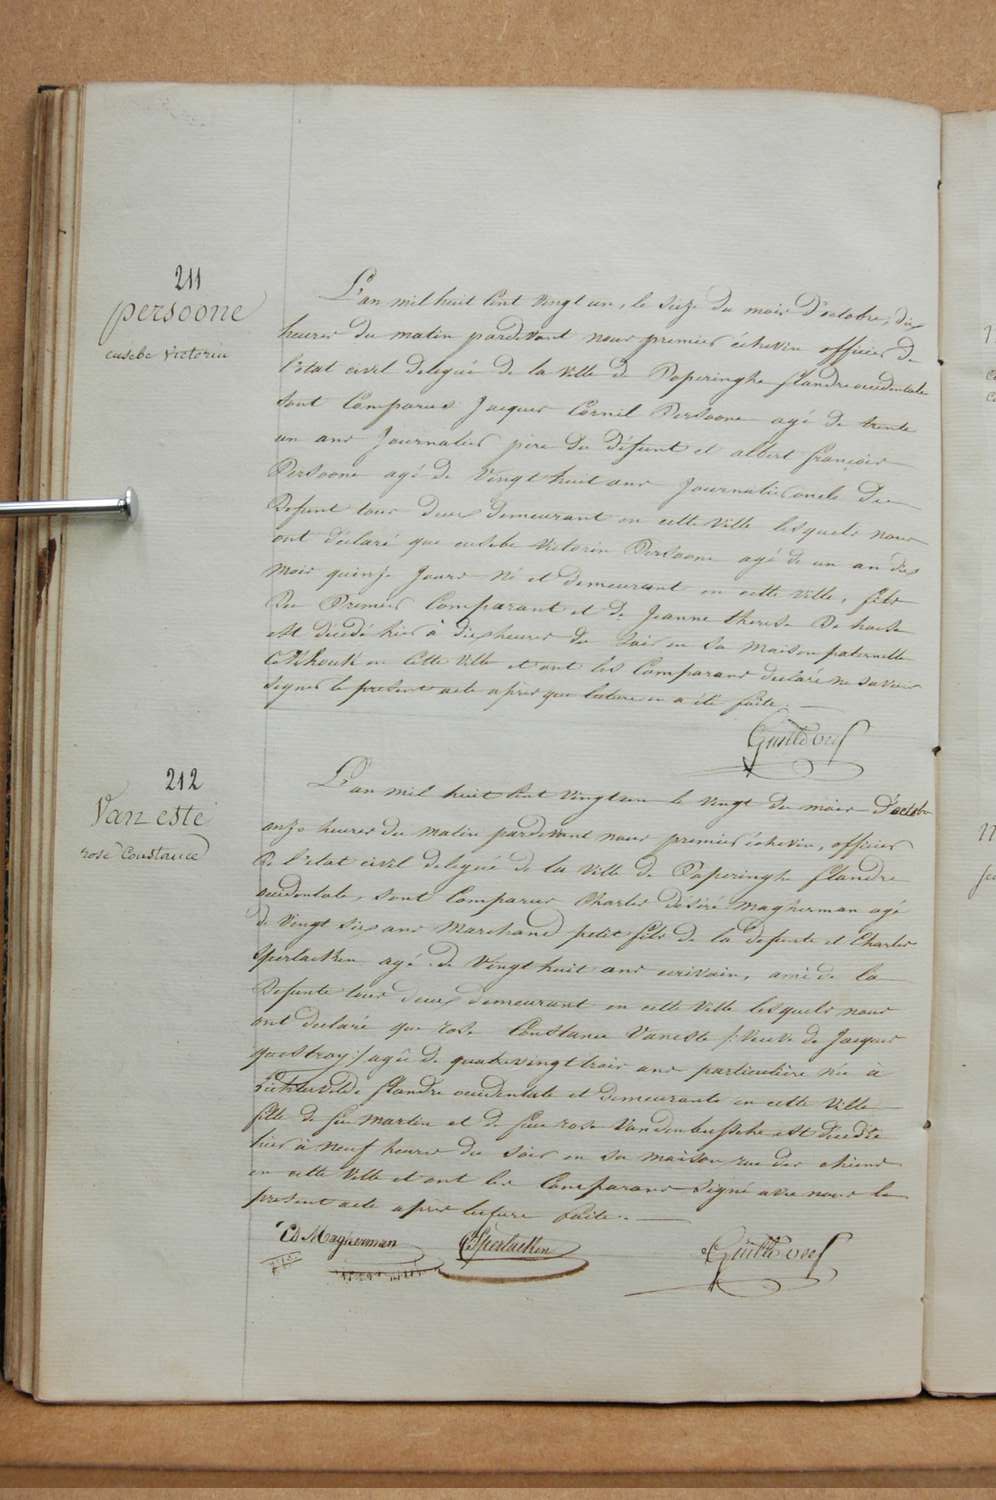 211
persoone
eusebe Victorin
L'an mil huit cent vingt un, le seize du mois d'octobre, dix
heures du matin pardevant nous premier échevin officier de
l'état civil delegué de la ville de Poperinghe flandre occidentale
sont Comparus Jacques Cornil Persoone agé de trente
un ans Journalier père du défunt et albert françois
Persoone agé de Vingt huit ans Journalier oncle du
Defunt tous deux demeurant en cette ville lesquels nous
ont déclaré que eusebe Victorin Persoone agé de un an dix
mois quinze Jours né et demeurant en cette ville, fils
Du Premier Comparant et de Jeanne therese De
est décédé hier à dix heures du soir en sa maison paternelle
en Cette Ville et ont les Comparans declaré ne savoir
signer le present acte après que lecture en a été faite.
212
Van este
rose Constance
L'an mil huit cent vingt un le vingt du mois D'octobre
onze heures du matin pardevant nous premier échevin, officier
De l'etat civil delegué de la ville de Poperinghe flandre
occidentale, sont Comparus Charles désiré Magherman agé
de Vingt six ans Marchand petit fils de la defunte et Charles
agé de Vingt huit ans ecrivain, ami de la
Defunte tous deux demeurant en cette ville lesquels nous
ont declaré que rose Constance Vaneste /: Veuve de Jacques
:/ agée de quatrevingt trois ans particulière née à
Lichtervelde flandre occidentale et demeurante en cette ville
fille de feu Martin et de feue rose Vandenbussche est décédée
hier à neuf heures du soir en sa maison rue des chiens
en cette Ville et ont les Comparans signé avec nous le
present acte après lecture faite.
CD Magherman